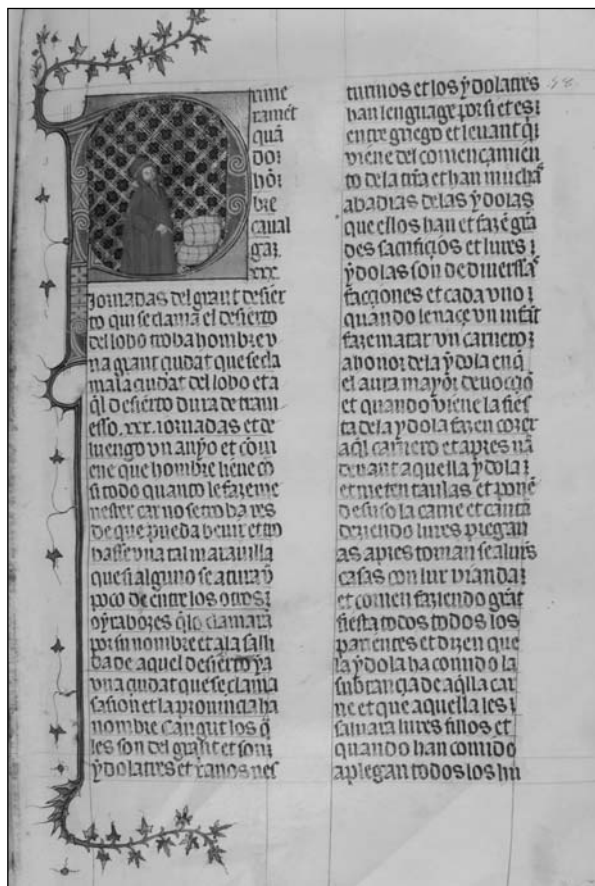 rime
ramēt
quā
dor
hōr
bre
caual
gar
xxx.
Jornadas del grant desier
to qui se clama el desierto
del lobo troba hombre v
na grant ciudat que se cla
ma la ciudat del lobo et a
q̄l desierto dura de traui
esso .xxx. iornadas et de
luengo vn anyo et cōui
ene que hombre lieue cō
si todo quanto le faze me
nester car no se troba res
de que pueda beuir et tro
basse vna tal marauilla
que si alguno se atura ȳ
poco de entre los otros
oyra bozes q̄lo clamara
por su nombre et a la salli
da de aquel desierto ya
vna ciudat que se clama
sasion et la prouincia ha
nombre Cangut los q̄
les son del grant et son
ydolatres et xanos nes
turinos et los ydolatres
han lenguage por si et es
entre griego et leuant q̄
viene del començamien
to de la trā et han muchas
abadias de las ydolas
que ellos han et fazē grā
des sacrificios et lures
ydolas son de diuerssas
facçiones et cada vno
quando le naçe vn infāt
faze matar vn carnero
a honor de la ydola en q̄
el aura mayor deuoçiō
et quando viene la fies
ta de la ydola fazen cozer
aq̄l carnero et apres uā
deuant aquella ydola
et meten taulas et ponē
desuso la carne et cantā
deziendo lures pregari
as apres tornan se a lurs
casas con lur vianda
et comen faziendo grāt
fiesta todos todos los
parientes et dizen que
la ydola ha comido la
subtançia de aq̄lla car
ne et que aquella les
saluara lures finos et
quando han comido
aplegan todos los hu
58